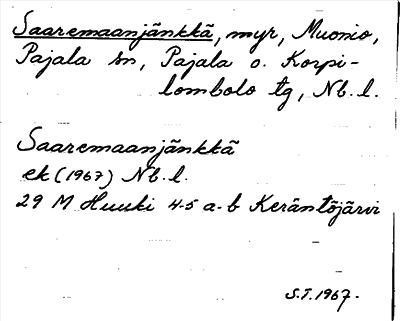 Saaremaanjänkkä, myr, Muonio,
Pajala sn, Pajala o. Korpi-
lombolo tg, Nb. l.
Saaremaanjänkkä
ek (1967) Nb. l.
29 M Huuki 4-5 a-b Keräntöjärvi
S.T. 1967.